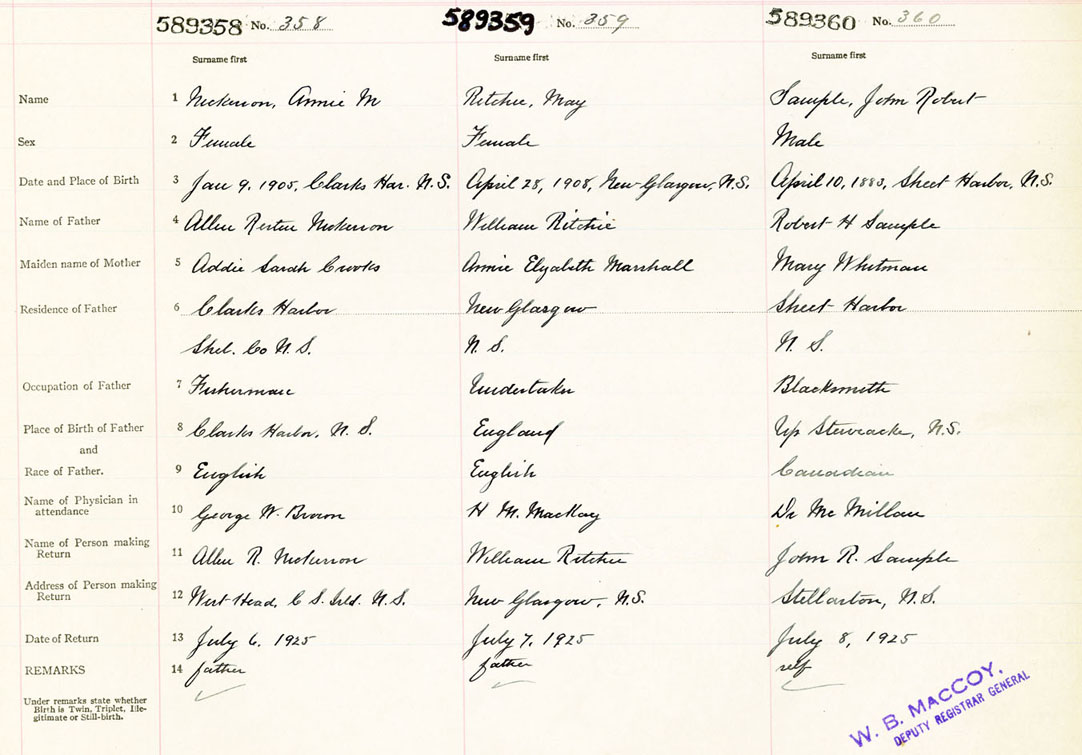 589358 No. 358 589359 No. 359 589360 No. 360
Surname first Surname first Surname first
Name 1 Nickerson, Annie M Ritchie, May Sample, John Robert
Sex 2 Female Female Male
Date and Place of Birth 3 Jan 9, 1905, Clarks Har. N.S. April 28, 1908, New Glasgow, N.S. April 10, 1883, Sheet Harbor, N.S.
Name of Father 4 Allen Nickerson William Ritchie Robert H Sample
Maiden name of Mother 5 Addie Sarah Crooks Annie Elizabeth Marshall Mary Whitman
Residence of Father 6 Clarks Harbor New Glasgow Sheet Harbor
Shel. Co N.S. N. S. N. S.
Occupation of Father 7 Fisherman Undertaker Blacksmith
Place of Birth of Father 8 Clarks Harbor, N. S. England Up Stewiacke, N.S.
and
Race of Father. 9 English English Canadian
Name of Physician in
attendance 10 George W. Brown H. M. MacKay Dr McMillan
Name of Person making
Return 11 Allen R. Nickerson William Ritchie John R. Sample
Address of Person making
Return 12 West Head, C. S. Isld. N.S. New Glasgow, N.S. Stellarton, N.S.
Date of Return 13 July 6, 1925 July 7, 1925 July 8, 1925
REMARKS 14 father father self
Under remarks state whether
Birth is Twin, Triplet, Ille-
gitimate or Still-birth.
W. B. MACCOY,
DEPUTY REGISTRAR GENERAL